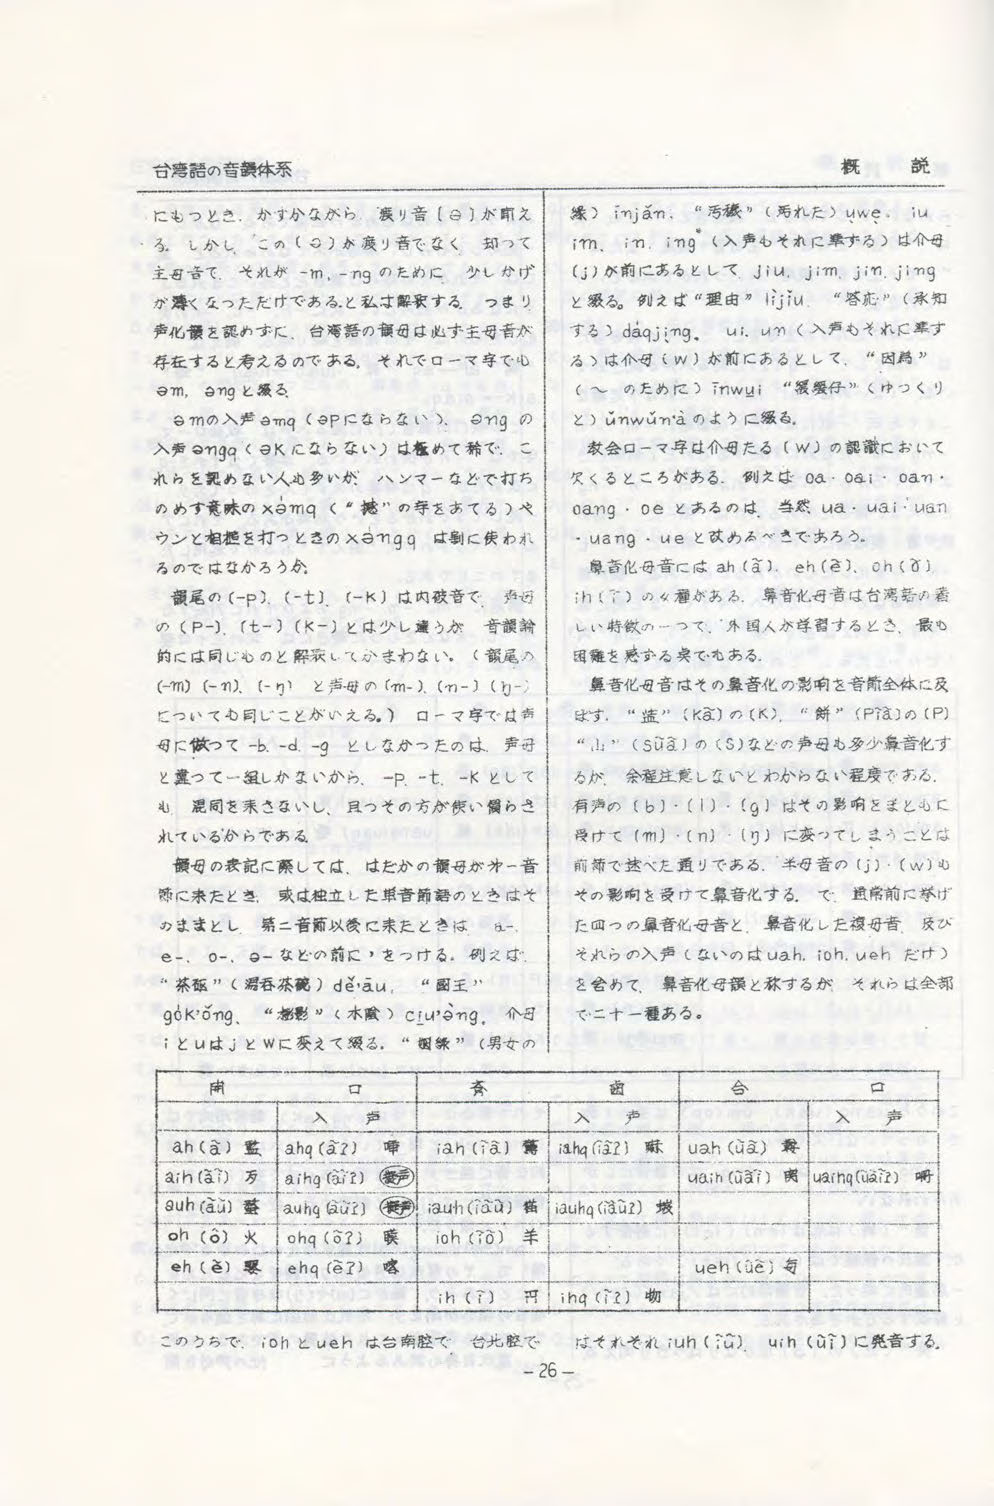 台湾語の音韻体系
概　説
にもつとき、かすかながら、渡り音〔ə〕が聞え
る。しかし、この〔ə〕が渡り音でなく、却って
主母音で、それが -m, -ng のために、少しかげ
が薄くなっただけであると私は解釈する。つまり
声化韻を認めずに、台湾語の韻母は必ず主母音が
存在すると考えるのである。それでローマ字でも
əm, əngと綴る。
əmの入声əmq（əpにならない）、əng の
入声əngq（əkにならない）は極めて稀で、こ
れらを認めない人も多いが、ハンマーなどで打ち
のめす意味のxə̀mq（“撼”の字をあてる）や
ウンと相槌を打つときのxə̀ngq は別に使われ
るのではなかろうか。
韻尾の〔-p〕、〔-t〕、〔-k〕は内破音で、声母
の〔p-〕、〔t-〕〔k-〕とは少し違うが、音韻論
的には同じものと解釈してかまわない。（韻尾の
〔-m〕〔-n〕、〔-ŋ〕 と声母の〔m-〕、〔n-〕〔ŋ-〕
についても同じことがいえる。） ローマ字では声
母に倣って -b, -d, -g としなかったのは、声母
と違って一組しかないから、-p, -t, -k として
も、混同を来さないし、且つその方が使い慣らさ
れているからである。
韻母の表記に際しては、はだかの韻母が第一音
節に来たとき、或は独立した単音節語のときはそ
のままとし、第二音節以後に来たときは、a-,
e-, o-, ə- などの前に ' をつける。例えば、
“茶甌”（湯呑茶碗）dě'āu, “國王”
gók'ǒng, “樹影”（木陰）ciu'ə̀ng, 介母
iとuはjとwに変えて綴る。“姻緣”（男女の
縁）īnjǎn, “汚穢”（汚れた）ụwẹ, iu
im, in, ing*（入声もそれに準ずる）は介母
〔j〕が前にあるとして、jiu, jim, jin, jing
と綴る。例えば“理由”lìjǐu, “答応”（承知
する）dáqjịng, ui, un（入声もそれに準ず
る）は介母〔w〕が前にあるとして、“因為”
（〜 のために）īnwụi “緩緩仔”（ゆっくり
と）ǔnwǔn'à のように綴る。
教会ローマ字は介母たる〔w〕の認識において
欠くるところがある。例えば oa・oai・oan・
oang・oe とあるのは、当然 ua・uai・uan
・uang・ue と改めるべきであろう。
鼻音化母音には ah〔ã〕、eh〔ẽ〕、oh〔õ〕、
ih〔ĩ〕の四種がある。鼻音化母音は台湾語の著
しい特徴の一つで、外国人が学習するとき、最も
困難を感ずる点でもある。
鼻音化母音はその鼻音化の影響を音節全体に及
ぼす。“监”〔kã〕の〔k〕、“餅”〔pĩã〕の〔p〕
“山”〔sũã〕の〔s〕などの声母も多少鼻音化す
るが、余程注意しないとわからない程度である。
有声の〔b〕・〔l〕・〔g〕はその影響をまともに
受けて〔m〕・〔n〕・〔ŋ〕に変ってしまうことは
前節で述べた通りである。半母音の〔j〕・〔w〕も
その影響を受けて鼻音化する。で、通常前に挙げ
た四つの鼻音化母音と、鼻音化した複母音、及び
それらの入声（ないのはuah, ioh, ueh だけ）
を含めて、鼻音化母韻と称するが、それらは全部
で二十一種ある。
開　口　齐　歯　合　口
入　声　入　声　入　声
ah〔ã〕監　ahq〔ãʔ〕　iah〔ĩã〕　iahq〔ĩãʔ〕　uah〔ũã〕
aih〔ãĩ〕歹　aihq〔ãĩʔ〕擬声　uaih〔ũãĩ〕　uaihq〔ũãĩʔ〕
auh〔ãũ〕　auhq〔ãũʔ〕擬声　iauh〔ĩãũ〕猫　iauhq〔ĩãũʔ〕
oh〔õ〕火　ohq〔õʔ〕膜　ioh〔ĩõ〕羊
eh〔ẽ〕嬰　ehq〔ẽʔ〕喀　ueh〔ũẽ〕每
ih〔ĩ〕円　ihq〔ĩʔ〕物
このうちで、ioh と ueh は台南腔で、台北腔で はそれぞれ iuh〔ĩũ〕、uih〔ũĩ〕に発音する。
-26-